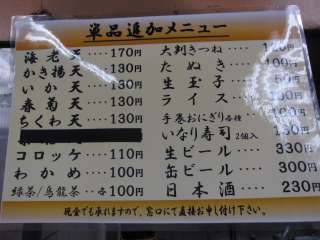 単品追加メニュー
海老天‥‥170円
かき揚天‥‥130円
いか天‥‥130円
春菊天‥‥130円
ちくわ天‥‥130円
コロッケ‥‥110円
わかめ‥‥100円
緑茶/烏龍茶‥各100円
大判きつね‥‥
たぬき‥‥100円
生玉子‥‥50円
ライス‥‥
手巻おにぎり各種
いなり寿司2個入
生ビール‥‥330円
缶ビール‥‥300円
日本酒‥‥230円
現金でも承れますので、窓口にて直接お申し付け下さい。